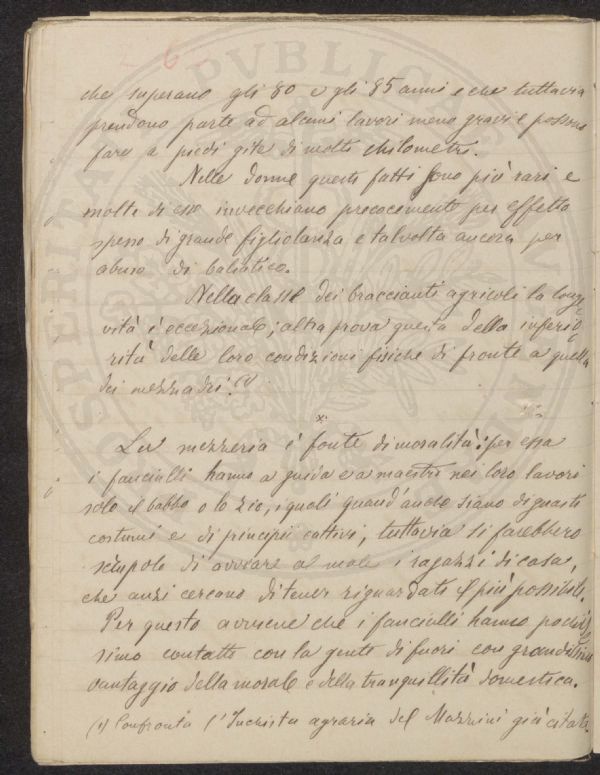 26
che superano gli 80 e gli 85 anni e che tuttavia
prendono parte ad alcuni lavori meno gravi e possono
fare a piedi gite di molti chilometri.
Nelle donne questi fatti sono più rari e
molte di esse invecchiano precocemente per effetto
spesso di grande figliolanza e talvolta ancora per
abuso di baliatico.
Nella classe dei braccianti agricoli la longe
vità è eccezionale; altra prova questa della inferio
rità delle loro condizioni fisiche di fronte a quella
dei mezzadri. (1)
x
La mezzeria è fonte di moralità: per essa
i fanciulli hanno a guida e a maestri nei loro lavori
solo il babbo o lo zio, i quali quand'anche siano di guasti
costumi e di principii cattivi, tuttavia si farebbero
scrupolo di avviare al male i ragazzi di casa,
che anzi cercano di tener riguardati il più possibile.
Per questo avviene che i fanciulli hanno pochis
simo contatto con la gente di fuori con grandissimo
vantaggio della morale e della tranquillità domestica.
(1) Confronta l'Inchiesta agraria del Mazzini già citata.